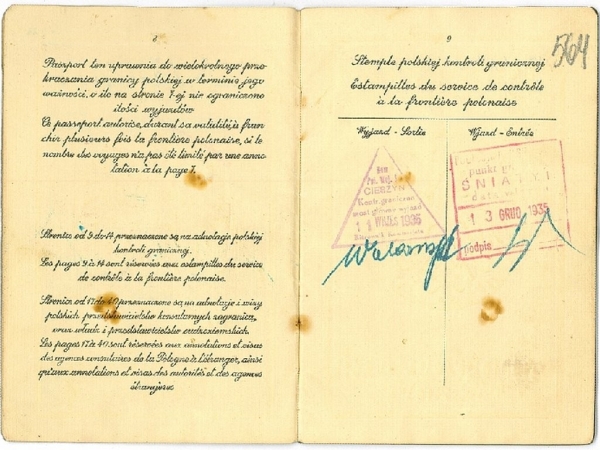 8
Paszport ten uprawnia do wielokrotnego prze-
kraczania granicy polskiej w terminie jego
ważności, o ile na stronie 7-ej nie ograniczono
ilości wyjazdów
Ce passeport autorise, durant sa validité, à fran-
chir plusieurs fois la frontière polonaise, si le
nombre des voyages n'a pas été limité par une anno-
tation à la page 7.
Stronice od 9 do 14 przeznaczone są na adnotacje polskiej
kontroli granicznej.
Les pages 9 à 14 sont réservées aux estampilles du service
de contrôle à la frontière polonaise.
Stronice od 17 do 40 przeznaczone są na adnotacje i wizy
polskich przedstawicielstw konsularnych zagranicą,
oraz władz i przedstawicielstw cudzoziemskich.
Les pages 17 à 40 sont réservées aux annotations et visas
des agences consulaires de la Pologne à l'étranger, ainsi
qu'aux annotations et visas des autorités et des agences
étrangères
9
564
Stemple polskiej kontroli granicznej
Estampilles du service de contrôle
à la frontière polonaise
Wyjazd - Sortie
Wjazd - Entrée
CIESZYN
WRZES 1935
punkt
ŚNIATYN
13 GRUD 1935
podpis